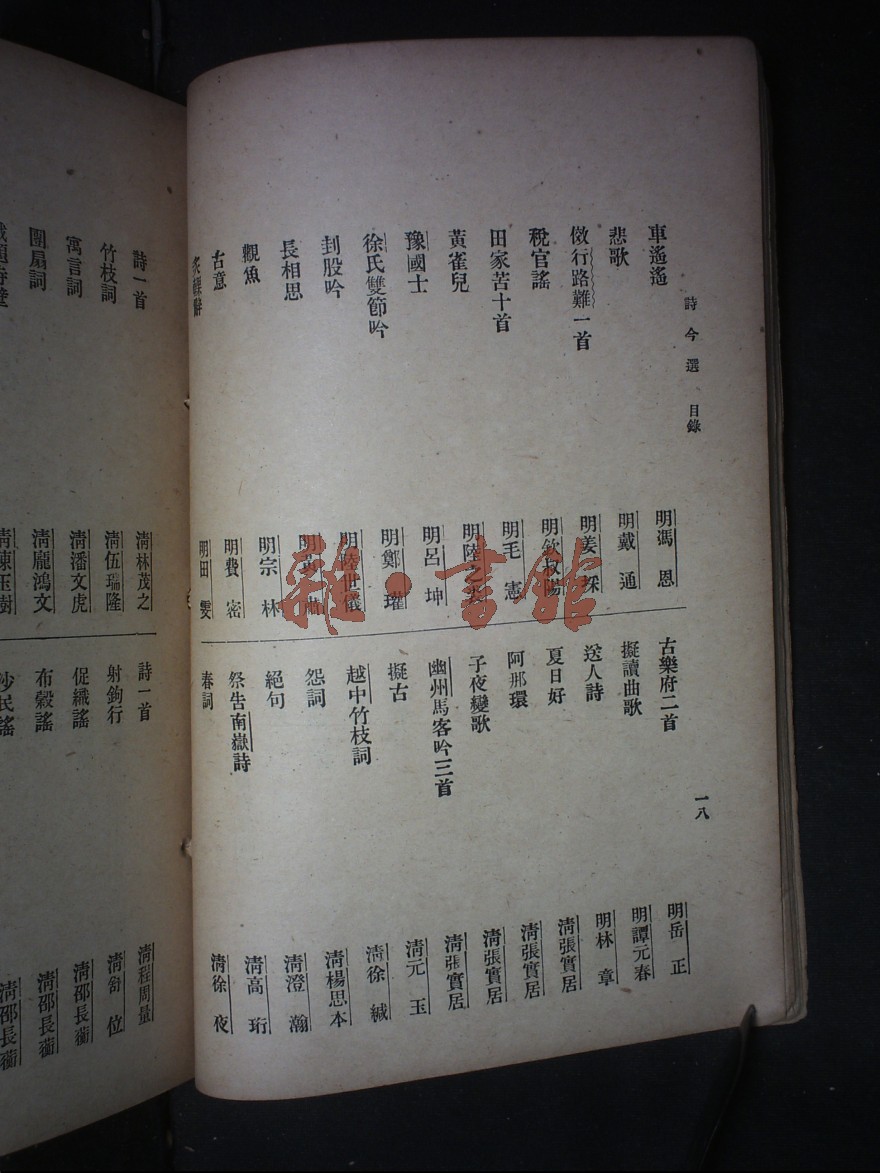 詩今選 目錄
一八
車遙遙 明馮恩
悲歌 明戴通
傚行路難一首 明姜埰
稅官謠 明欽叔陽
田家苦十首 明毛憲
黃雀兒 明陸之
豫國士 明呂坤
徐氏雙節吟 明鄭瓘
刲股吟 明陸世儀
長相思 明黃
觀魚 明宗林
古意 明費密
明田雯
古樂府二首 明岳正
擬讀曲歌 明譚元春
送人詩 明林章
夏日好 清張實居
阿那環 清張實居
子夜變歌 清張實居
幽州馬客吟三首 清張實居
擬古 清元玉
越中竹枝詞 清徐緘
怨詞 清楊思本
絕句 清澄瀚
祭告南嶽詩 清高珩
春詞 清徐夜
詩一首 清林茂之
竹枝詞 清伍瑞隆
寓言詞 清潘文虎
團扇詞 清龐鴻文
清陳玉樹
詩一首 清程周量
射鉤行 清舒位
促織謠 清邵長蘅
布穀謠 清邵長蘅
沙民謠 清邵長蘅
雜·書館